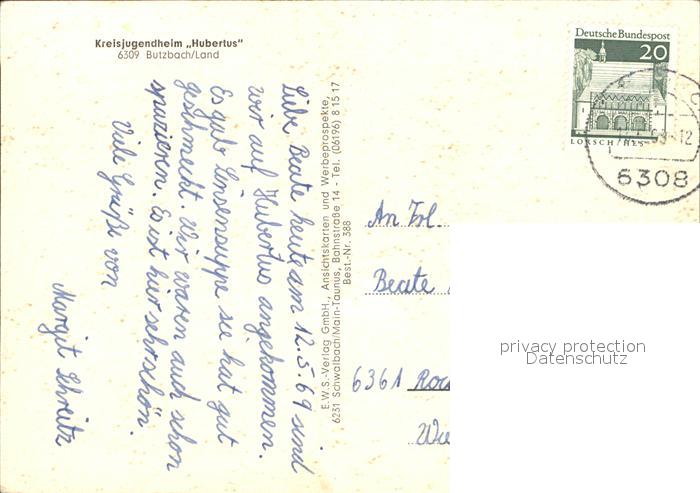 Kreisjugendheim „Hubertus"
6309 Butzbach/Land
Liebe Beate heute am 12.5.69 sind
wir auf Hubertus angekommen.
Es gab Linsensuppe sie hat gut
geschmeckt. Wir waren auch schon
spazieren. Es ist hier sehr schön.
Viele Grüße von
Margit Schreitz
E.W.S.-Verlag GmbH., Ansichtskarten und Werbeprospekte,
6231 Schwalbach/Main-Taunus, Bahnstraße 14 - Tel. (06196) 8 15 17
Best.-Nr. 388
Deutsche Bundespost
20
LORSCH/HES
-12
6308
An Frl.
Beate
6361 Roc
Wie
privacy protection
Datenschutz